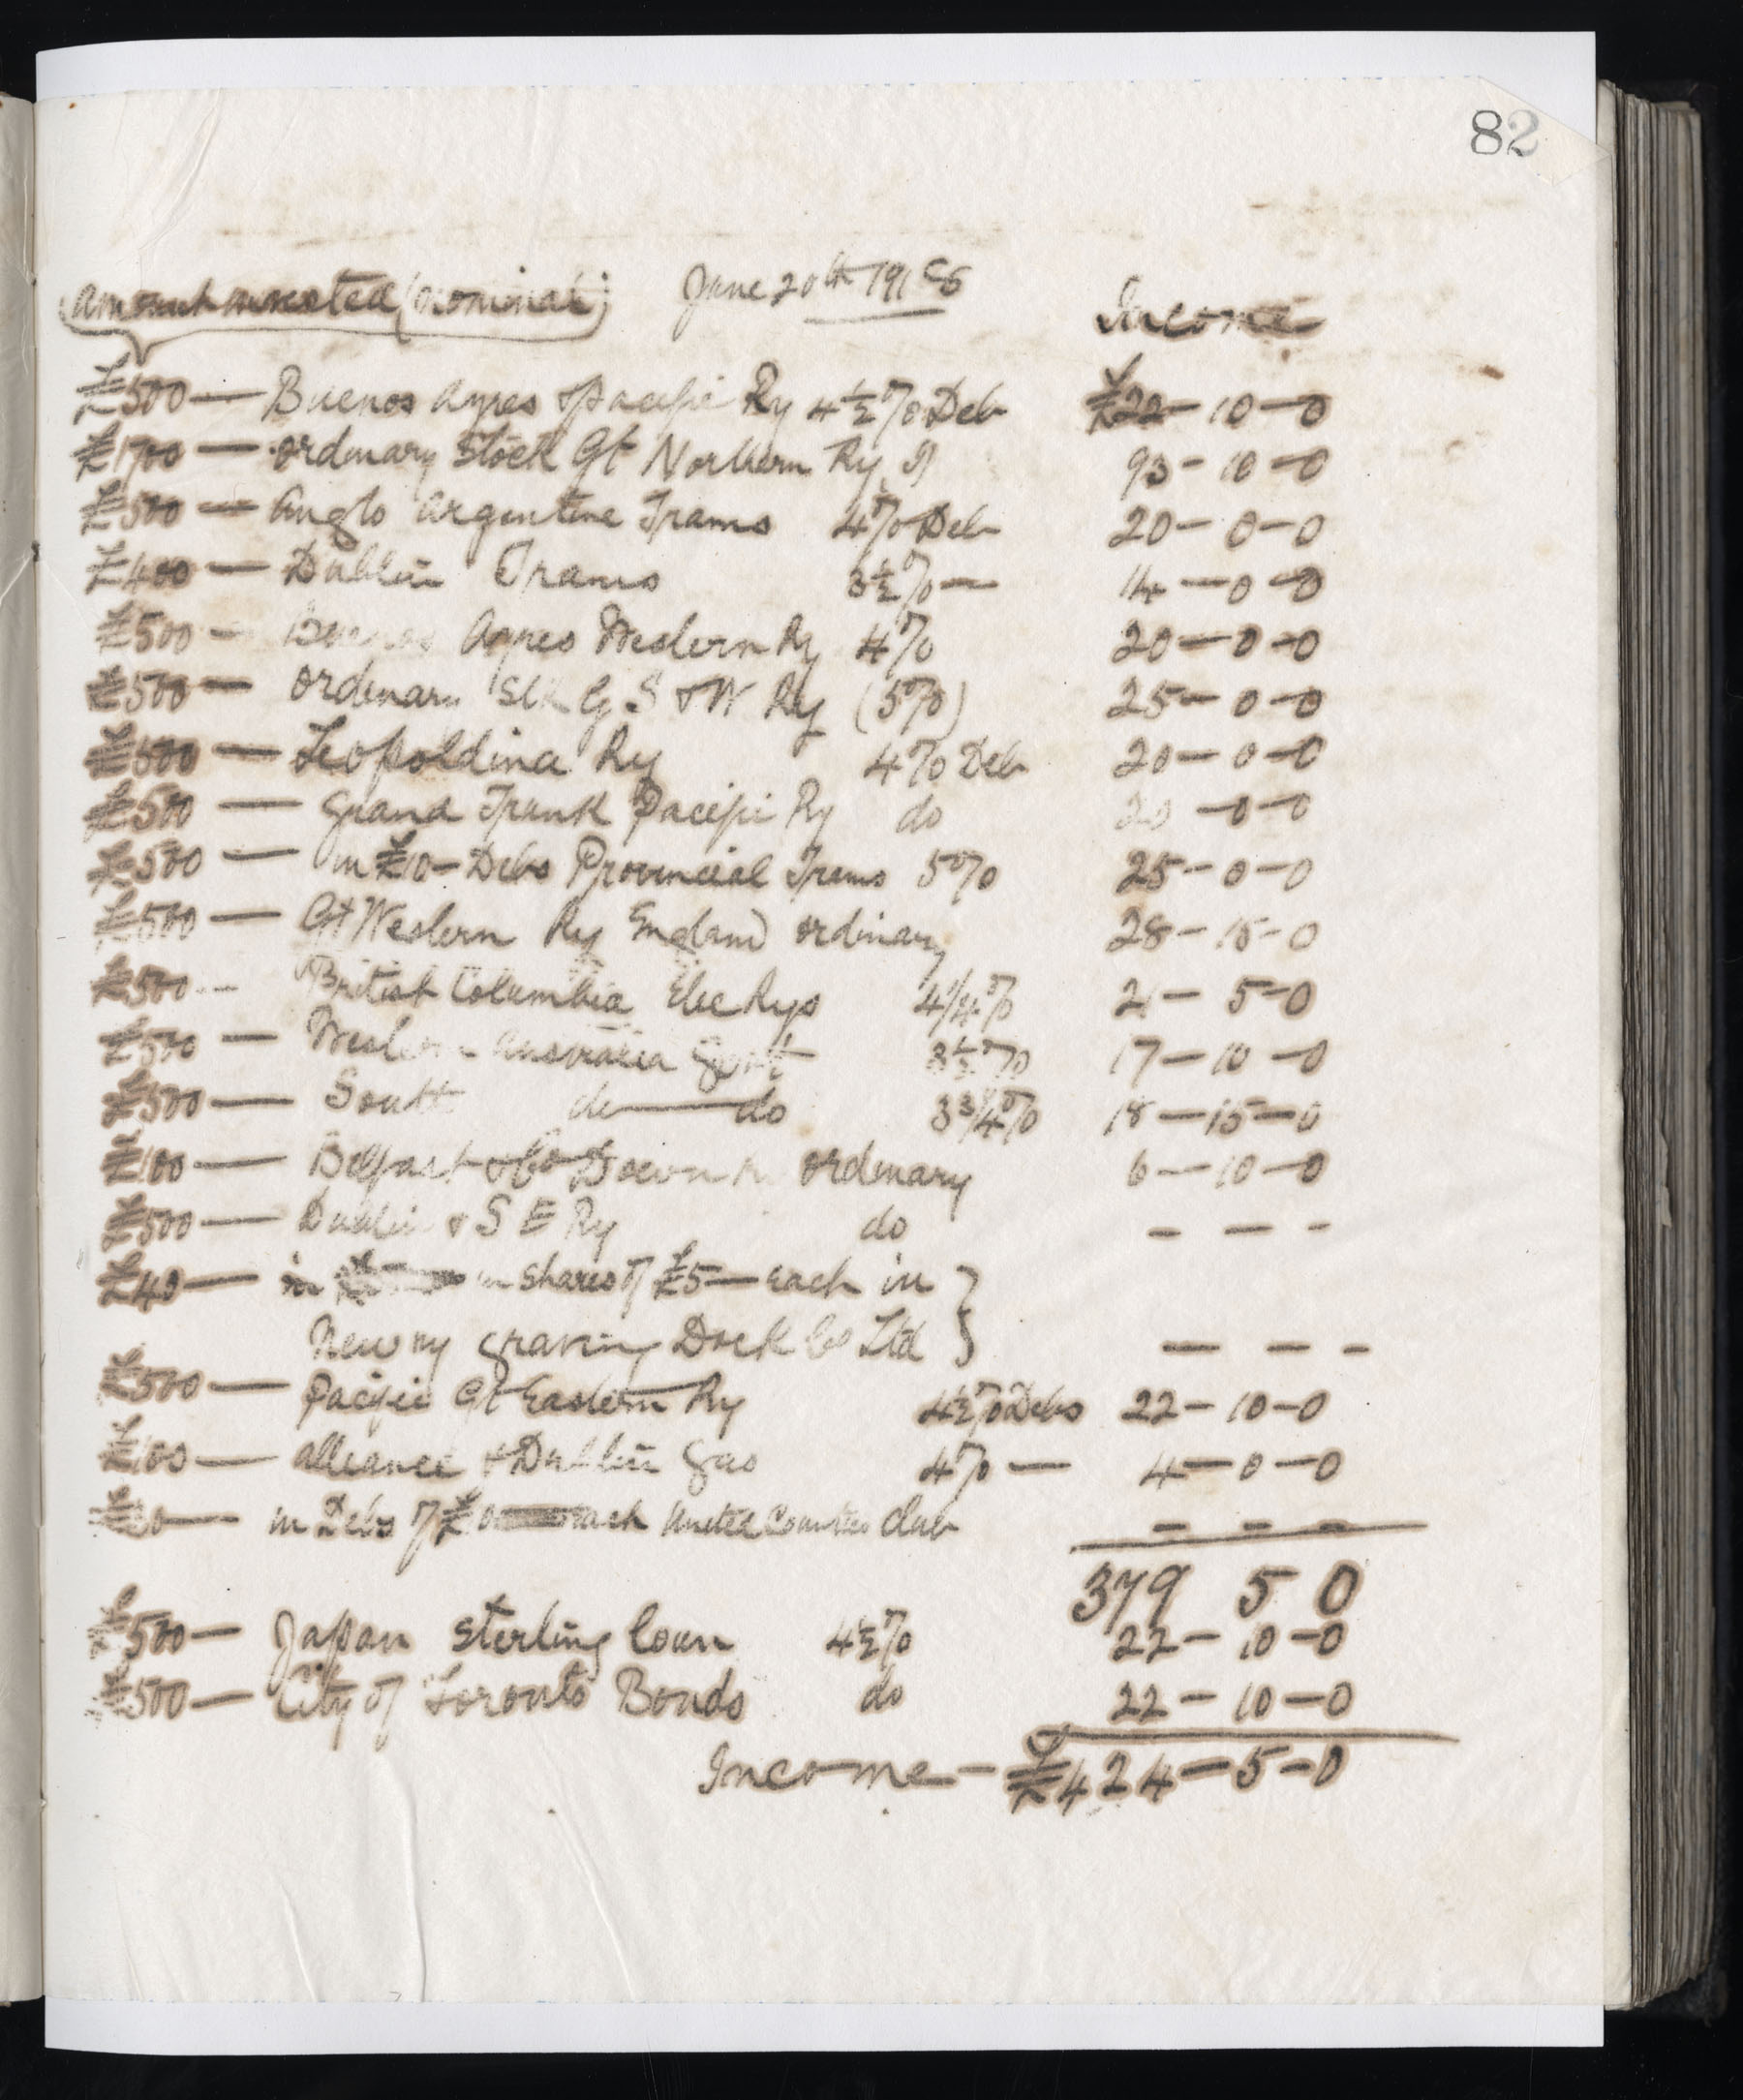 82
Amount invested (nominal) June 20th 191 Income
£500 — Buenos Ayres & Pacific Ry 4½% Deb £22 - 10 - 0
£1700 — ordinary Stock Gt Northern Ry 93 - 10 - 0
£500 — Anglo Argentine Trams 4% Deb 20 - 0 - 0
£400 — Dublin Trams 3½% — 14 - 0 - 0
£500 — Buenos Ayres Western Ry 4% 20 - 0 - 0
£500 — Ordinary Stk G S & W Ry (5%) 25 - 0 - 0
£500 — Leopoldina Ry 4% Deb 20 - 0 - 0
£500 — Grand Trunk Pacific Ry do 20 - 0 - 0
£500 — in £10 - Debs Provincial Trams 5% 25 - 0 - 0
£500 — Gt Western Ry England ordinary 28 - 15 - 0
£500 — British Columbia Elec Rys 4¼% 21 - 5 - 0
£500 — Western Australia Govt 3½% 17 - 10 - 0
£500 — South do — do 3¾% 18 - 15 - 0
£100 — Belfast & Co Down Ry ordinary 6 - 10 - 0
£500 — Dublin & S E Ry do - - -
£40 — in in shares of £5 — each in }
Newry Graving Dock Co Ltd } - - -
£500 — Pacific Gt Eastern Ry 4½% Debs 22 - 10 - 0
£100 — Alliance & Dublin Gas 4% — 4 - 0 - 0
in Debs of each United Counties Club - - -
379 5 0
£500 — Japan Sterling loan 4½% 22 - 10 - 0
£500 — City of Toronto Bonds do 22 - 10 - 0
Income - £424 - 5 - 0